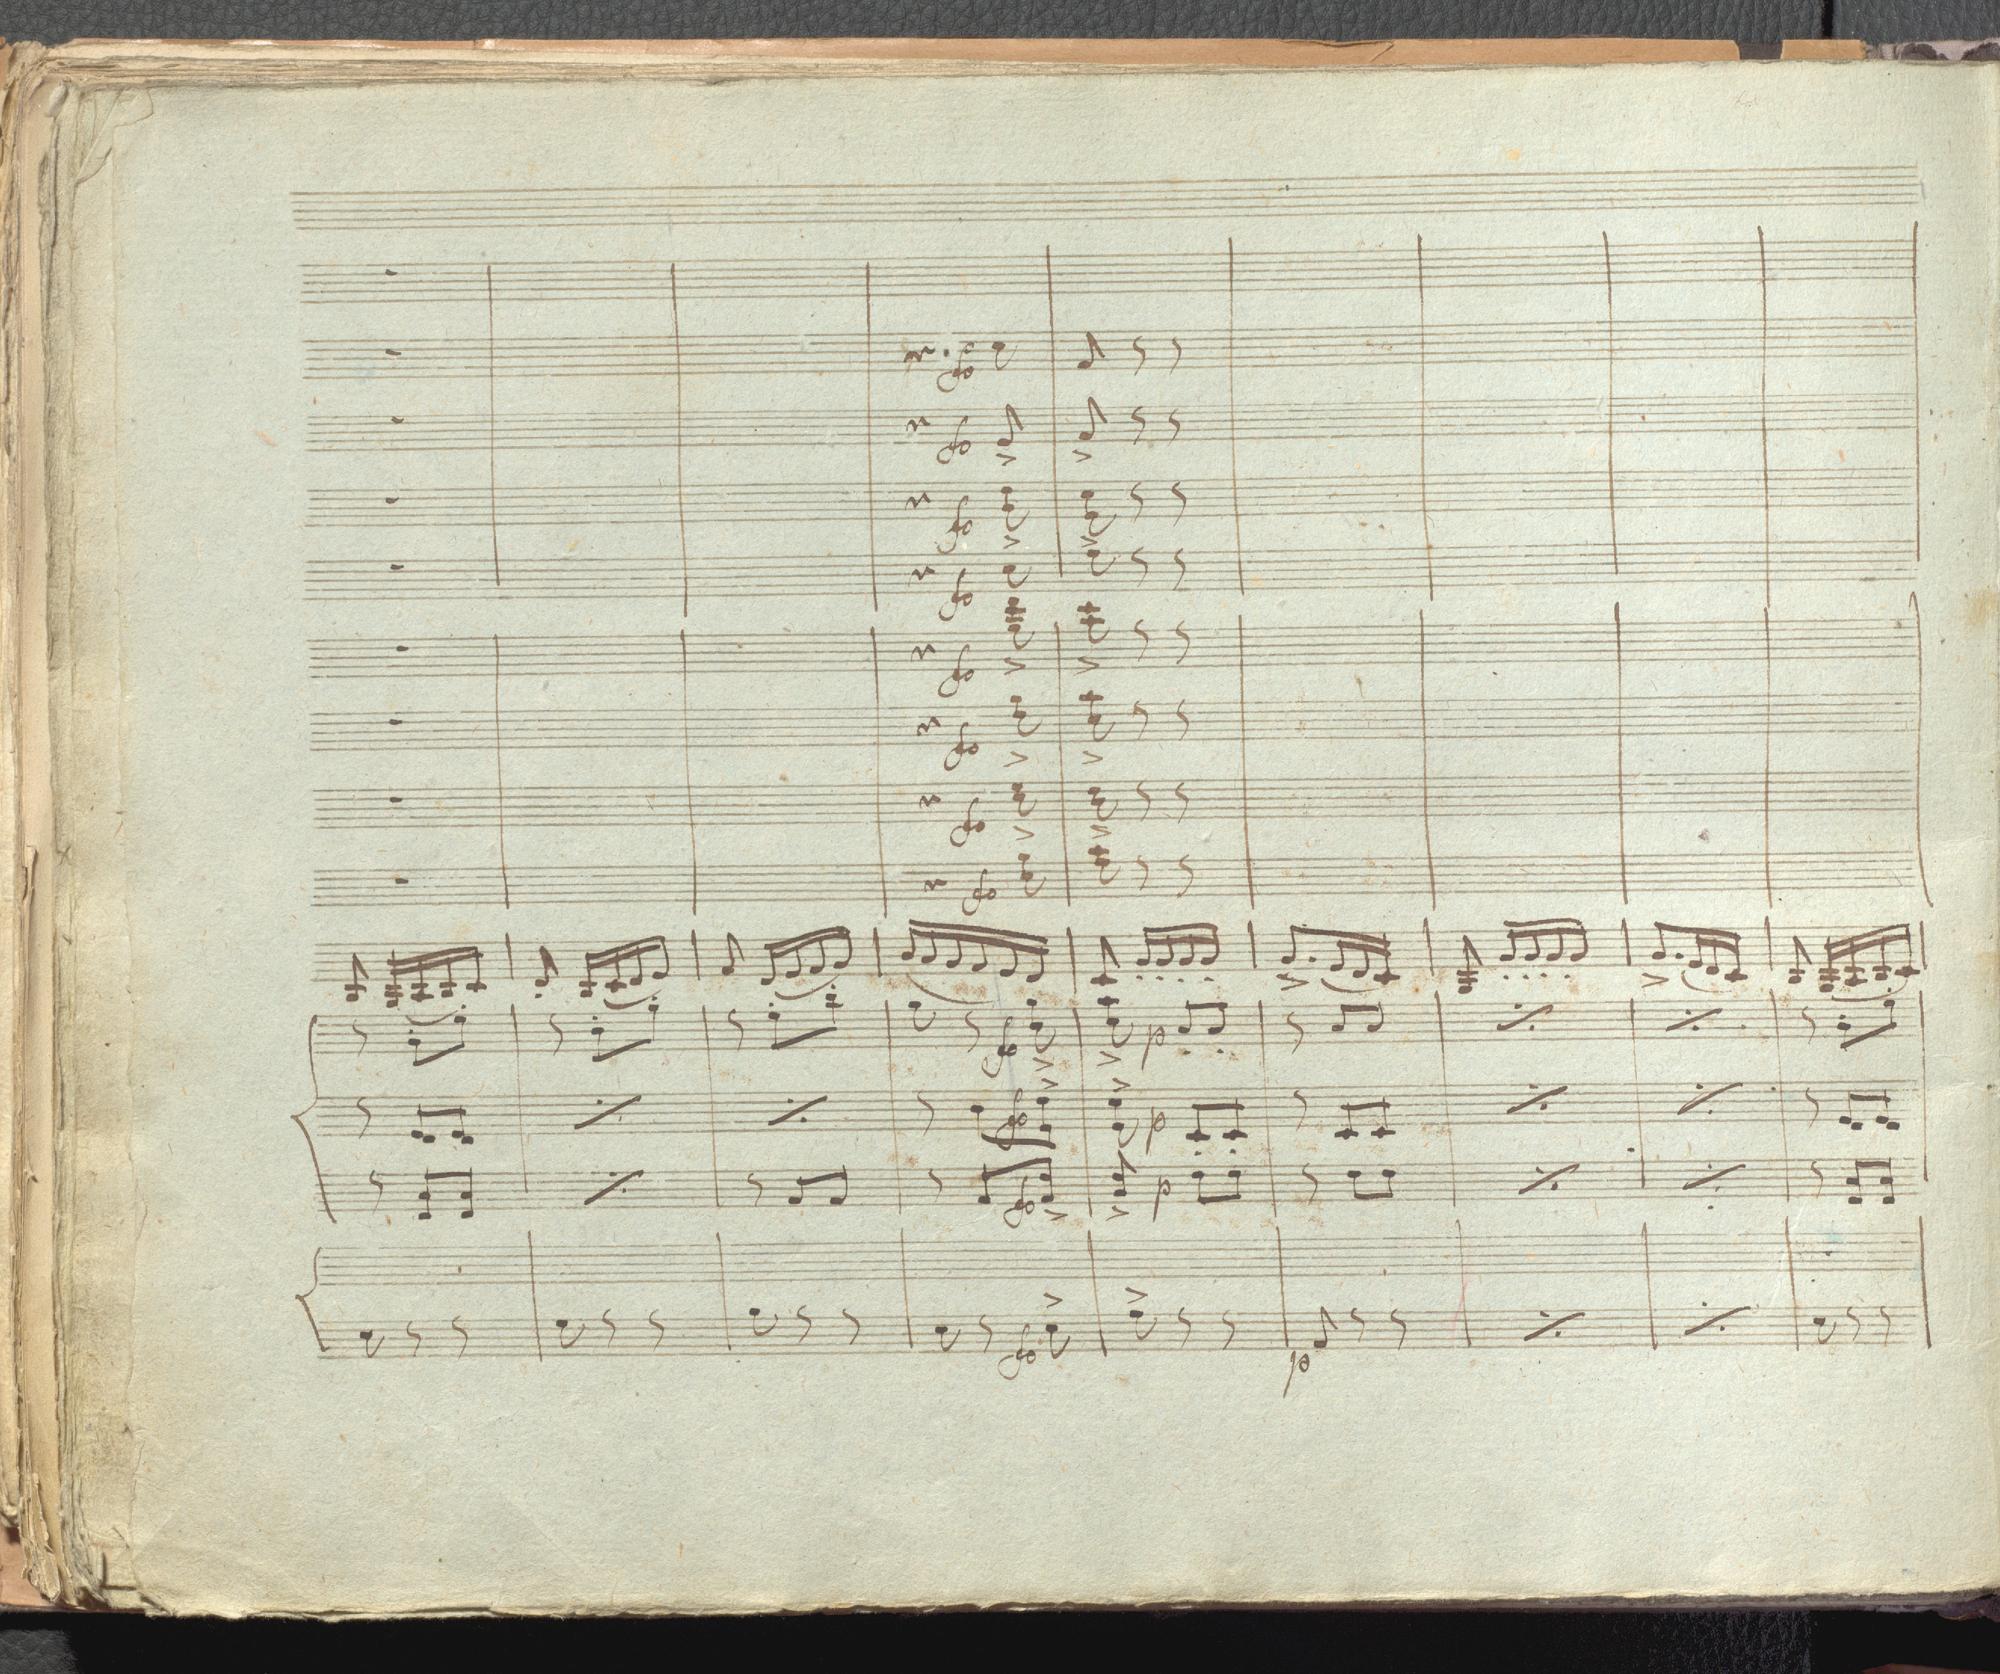 fo
fo
fo
fo
fo
fo
fo
fo
fo p
fo p
fo p
fo p